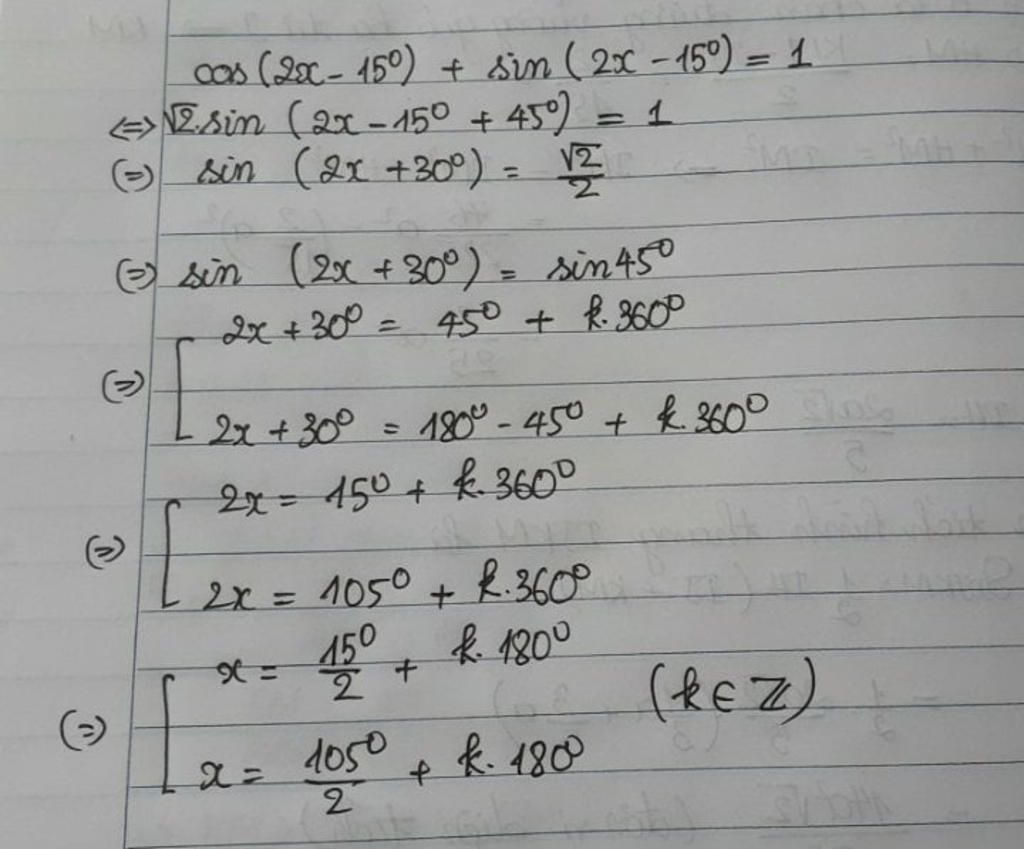 cos(2x - 15⁰) + sin(2x - 15⁰) = 1
⇔ √2.sin (2x - 15⁰ + 45⁰) = 1
(=) sin (2x + 30⁰) = √2/2
(=) sin (2x + 30⁰) = sin45⁰
2x + 30⁰ = 45⁰ + k.360⁰
(=) [
2x + 30⁰ = 180⁰ - 45⁰ + k.360⁰
2x = 15⁰ + k.360⁰
(=) [
2x = 105⁰ + k.360⁰
x = 15⁰/2 + k.180⁰
(=) [ (k ∈ ℤ)
x = 105⁰/2 + k.180⁰